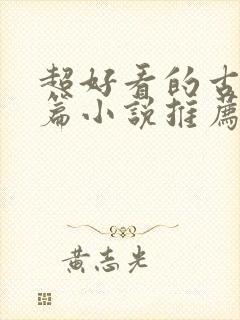 超好看的古
篇小說推薦
黃志光